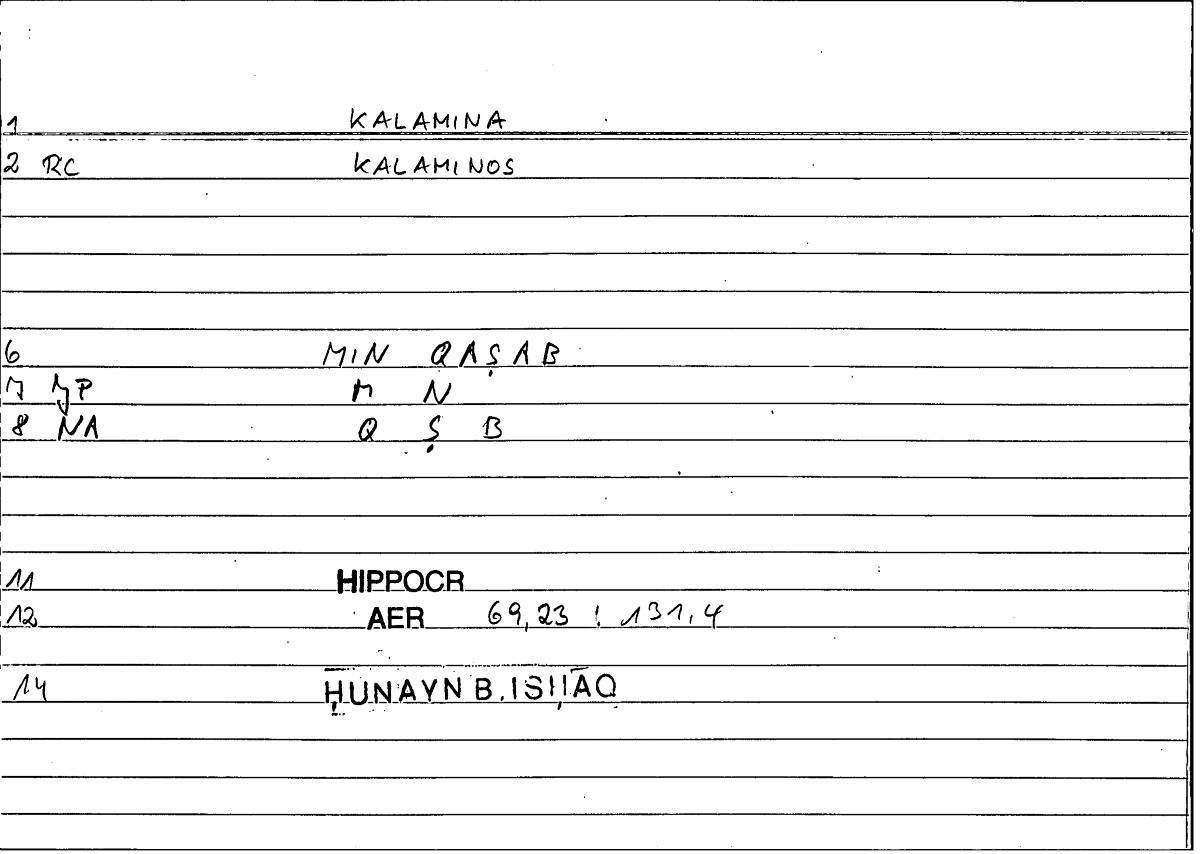 1 KALAMINA
2 RC KALAMINOS
6 MIN QAṢAB
7 M N
8 NA Q Ṣ B
11 HIPPOCR
12 AER 69,23 : 131,4
14 ḤUNAYN B. ISḤĀQ